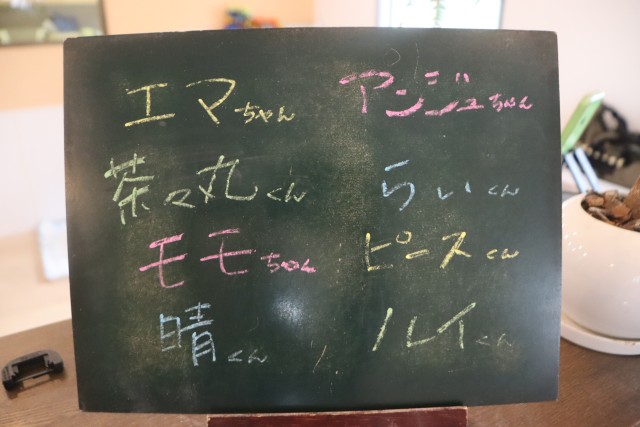 エマちゃん アンジュちゃん
茶々丸くん らいくん
モモちゃん ピースくん
晴くん ルイくん